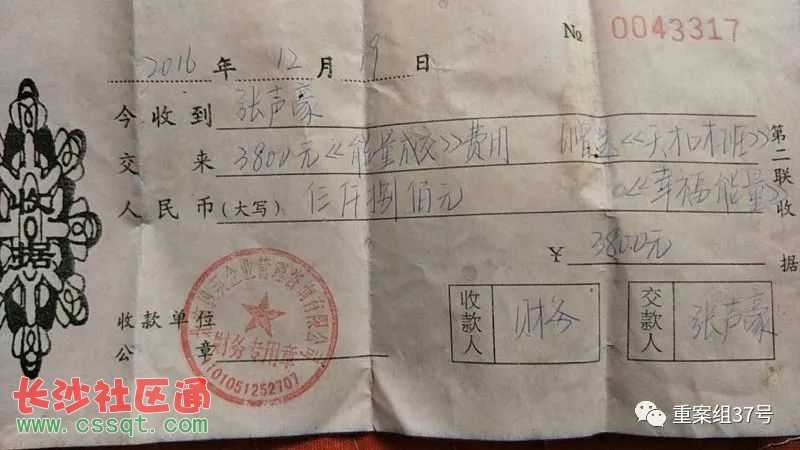 № 0043317
2016年12月19日
今收到 张声豪
交来 3800元《能量 》费用 (赠送《天 班》
人民币(大写) 仨仟捌佰元 《幸福能量》
¥ 3800元
第二联收据
收据
收款单位
公章
企业管理咨询有限公司
财务专用章
101051252707
收款人 财务
交款人 张声豪
长沙社区通
www.cssqt.com
重案组37号